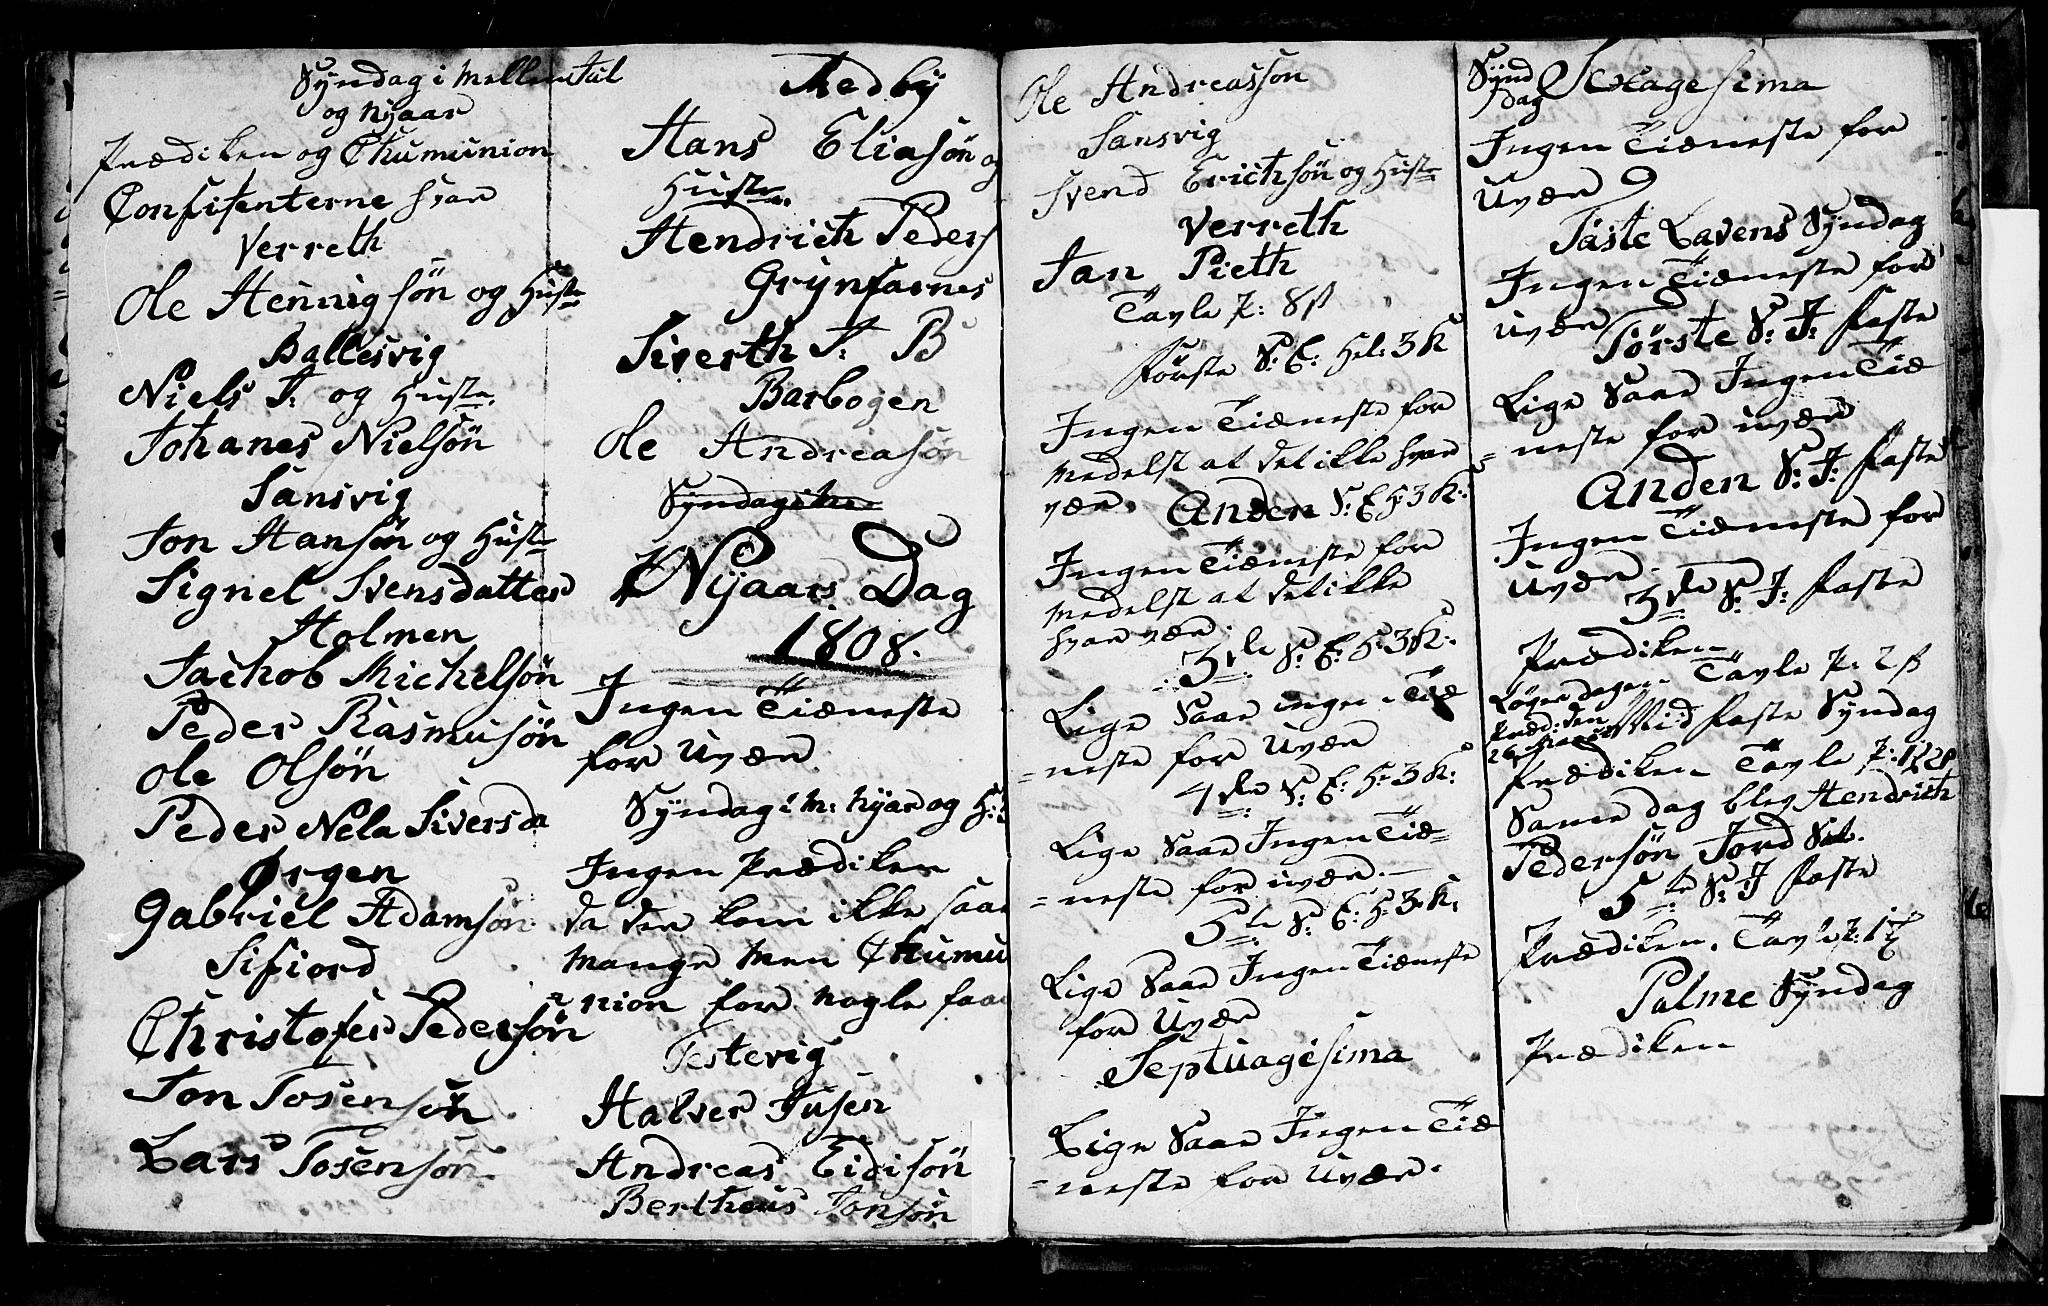 Syndag i Mellem Jul
og Nyaar
Prædiken og Chumunion
Confitenterne hvar
Verreth
Ole Hennigsön og Hust=
Ballesvig
Niels J: og Hust=
Johanes Nielsön
Sansvig
Jon Hansön og Hust=
Signel Svensdatter
Holmen
Jachob Michelsön
Peder Rasmusön
Ole Olsön
Peder Nela Siversda
Ørgen
Gabriel Adamsön
Sifiord
Christofer Pedersön
Jon Tosensön
Lars Tosensön
Medby
Hans Eliasön og
Hust=
Hendrich Peders
Grynfarnes
Siverth J: B
Barbogen
Ole Andreasön
Syndag i
Nyaars Dag
1808.
Ingen Tiæneste
for Uvær
Syndag i M: Nyar og H: 3
Ingen Prædiken
da der kom ikke saa
Mange Men Chumu
= nion for nogle faa
Testevig
Halver Jusen
Andreas Eidisön
Bertheus Jonsön
Ole Andreassön
Sansvig
Svend Erichsön og Hust=
Verreth
Jan Pieth
Tavle P: 8 ß
Förste S: E: Hel: 3 K
Ingen Tiæneste for
Medelst at det ikke hvar
vær. Anden S: E: H: 3 K:
Ingen Tiæneste for
Medelst at det ikke
hvar vær.
3de S: E: H: 3 K:
Lige Saar ingen Tiæ
= neste for Uvær
4de S: E: H: 3 K:
Lige Saar Ingen Tiæ=
= neste for uvær.
5te S: E: H: 3 K:
Lige Saar Ingen Tiæneste
for Uvær
Septuagesima
Lige Saar Ingen Tiæ
= neste for Uvær.
Synd
dag Sexagesima
Ingen Tiæneste for
Uvær
Faste Lavens Syndag
Ingen Tiæneste for
uvær Förste S: I: Faste
Lige Saar Ingen Tiæ
= neste for uvær
Anden S: I: Faste
Ingen Tiæneste for
Uvær.
3de S: I: Faste
Prædiken Tavle P: 2 ß
Löverdagen
Præd: den
26 Mid Faste Syndag
Prædiken Tavle P:
Same dag blev Hendrich
Pedersön Jord Sat.
5te S: I Faste
Prædiken. Tavle P:
Palme Syndag
Prædiken